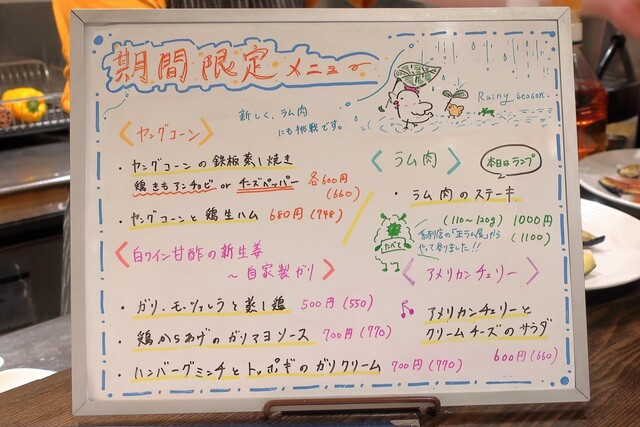 期間限定メニュー
新しく、ラム肉
にも挑戦です。
Rainy season.
〈ヤングコーン〉
・ヤングコーンの鉄板蒸し焼き
鶏きもアンチョビ or チーズペッパー 各600円
(660)
・ヤングコーンと鶏生ハム 680円(748)
〈白ワイン甘酢の新生姜
〜自家製ガリ〉
・ガリ、モッツァレラと蒸し鶏 500円(550)
・鶏からあげのガリマヨソース 700円(770)
・ハンバーグミンチとトッポギのガリクリーム 700円(770)
〈ラム肉〉
本日はランプ
・ラム肉のステーキ
(110〜120g) 1000円
(1100)
たべて
系列店の「玉ラム屋」から
やって参りました!!
〈アメリカンチェリー〉
アメリカンチェリーと
クリームチーズのサラダ
600円(660)